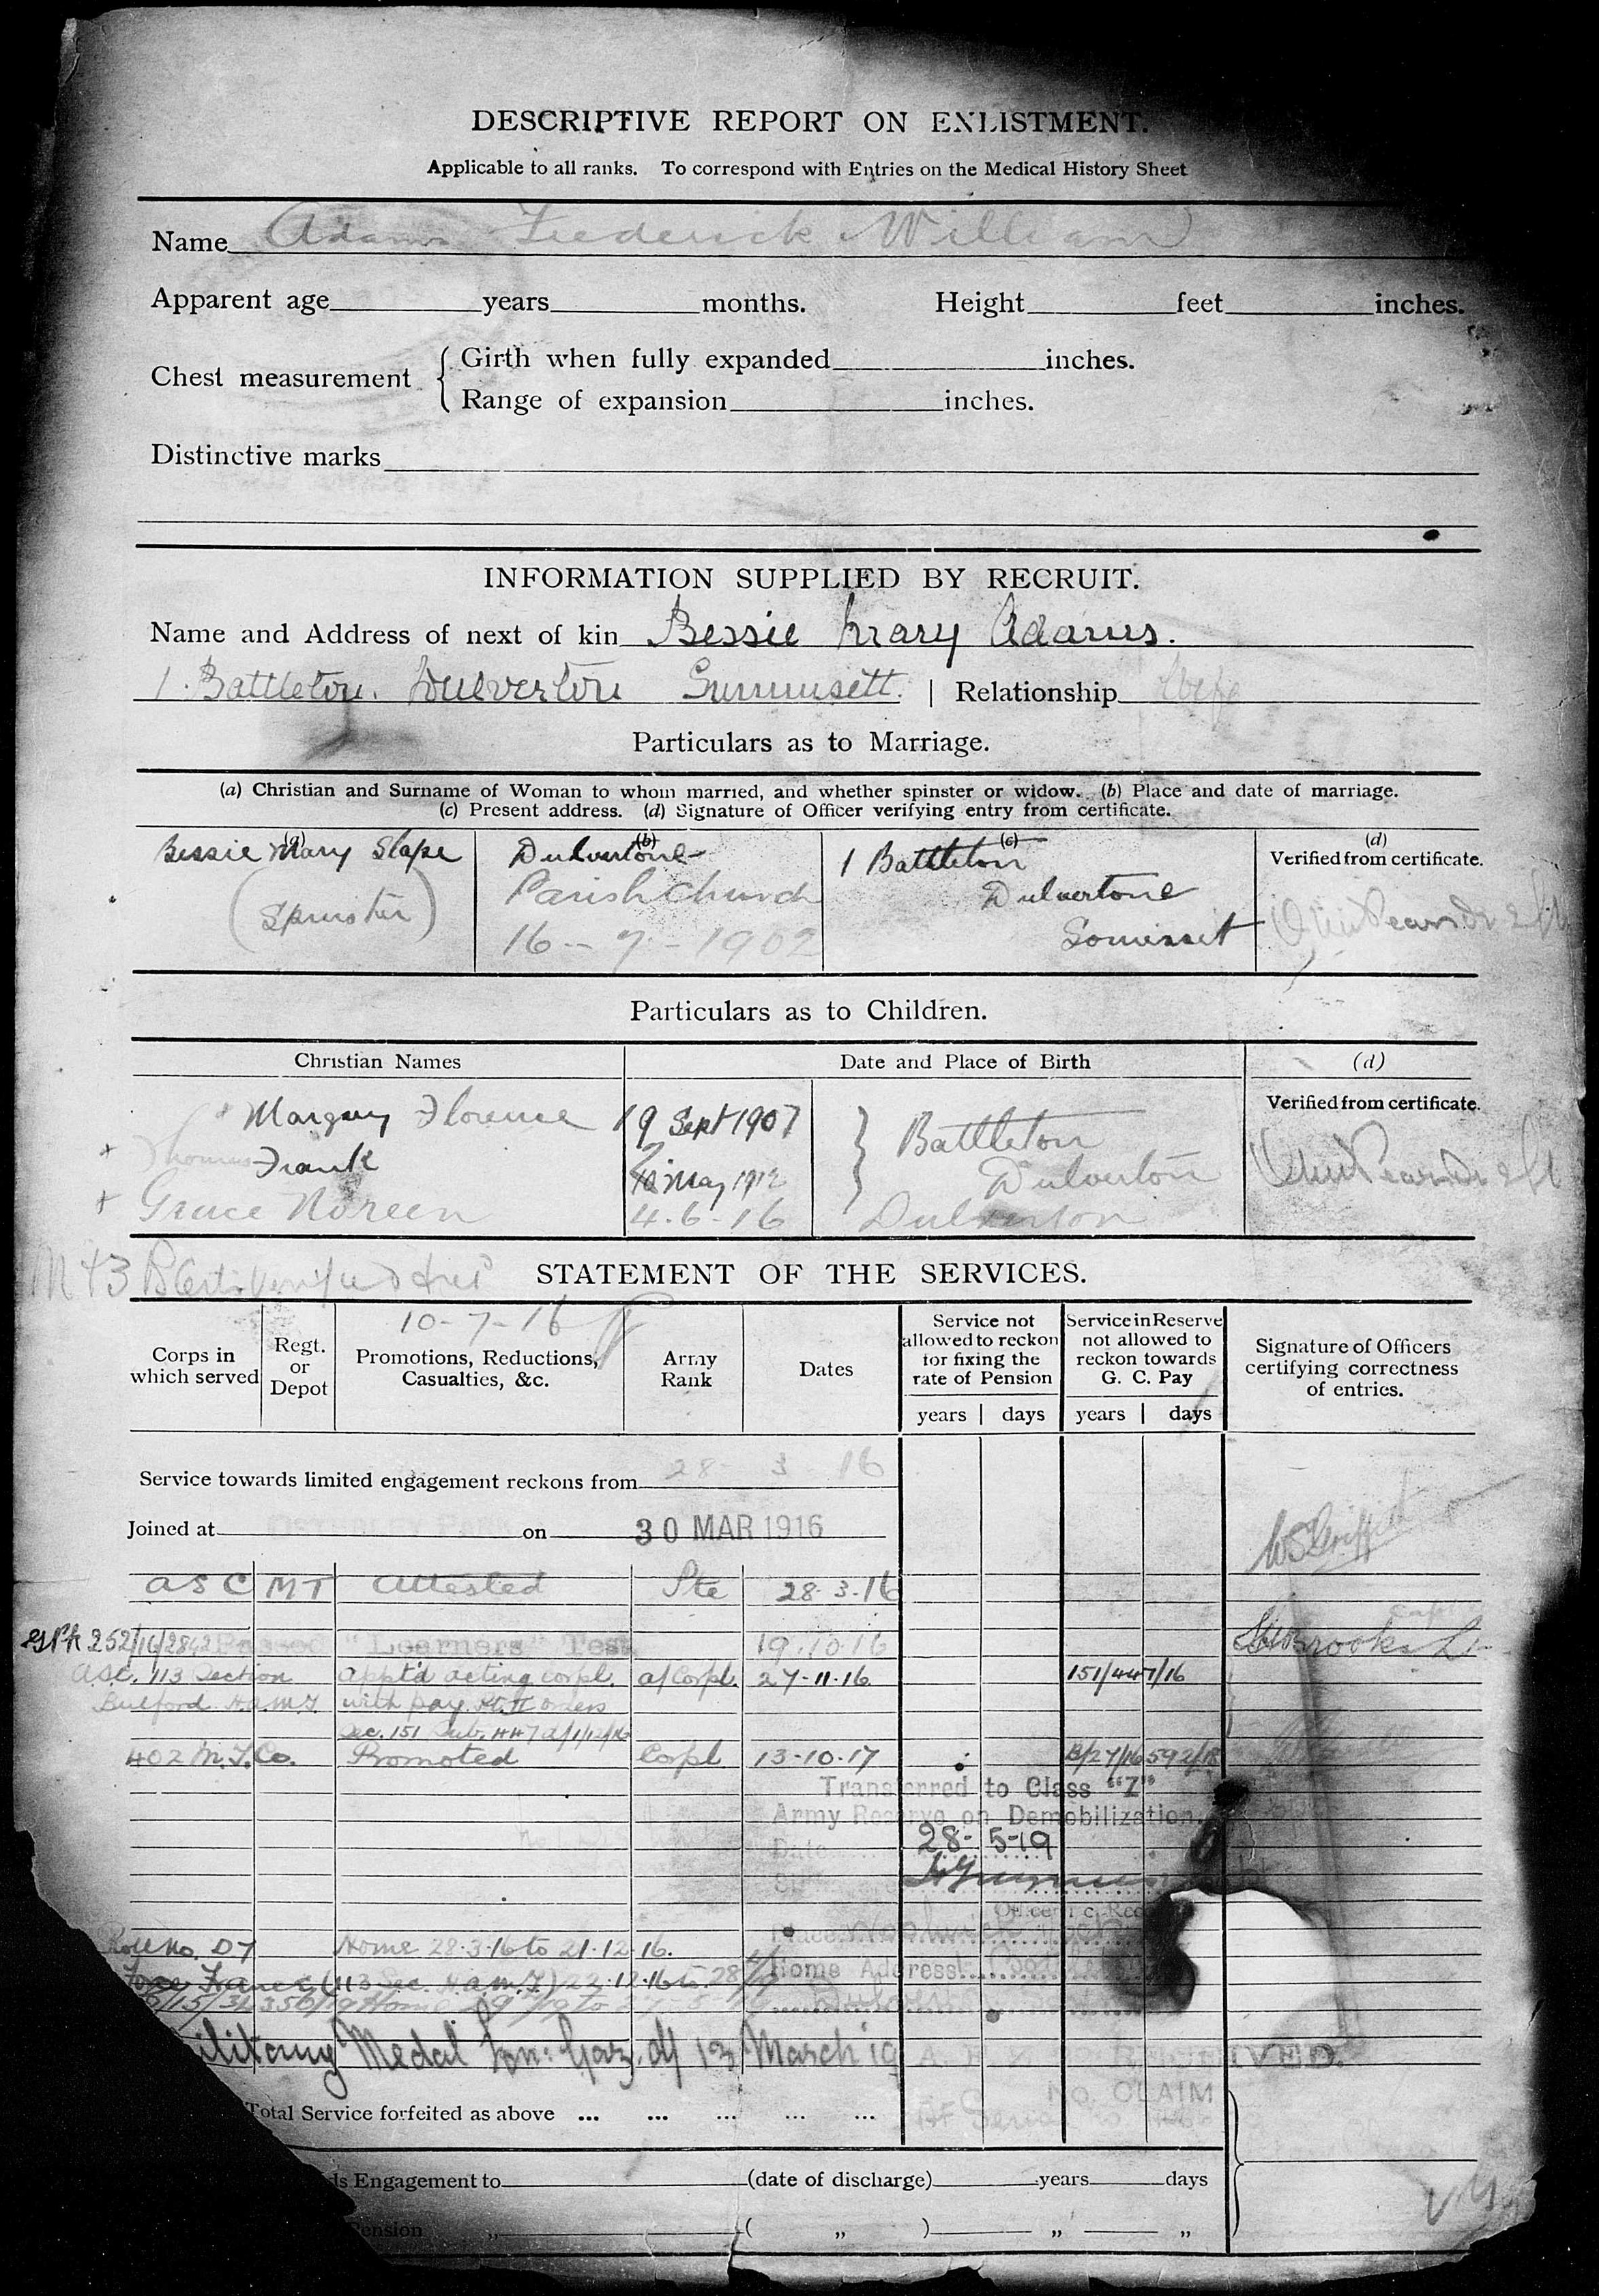 DESCRIPTIVE REPORT ON ENLISTMENT.
Applicable to all ranks. To correspond with Entries on the Medical History Sheet
Name Adams Frederick William
Apparent age years months. Height feet inches.
Chest measurement { Girth when fully expanded inches.
Range of expansion inches.
Distinctive marks
INFORMATION SUPPLIED BY RECRUIT.
Name and Address of next of kin Bessie Mary Adams.
1. Battleton. Dulverton Summsett. | Relationship Wife
Particulars as to Marriage.
(a) Christian and Surname of Woman to whom married, and whether spinster or widow. (b) Place and date of marriage.
(c) Present address. (d) Signature of Officer verifying entry from certificate.
(a) (b) (c) (d)
Bessie Mary Slape Dulvertone 1 Battleton Verified from certificate.
(Spinster) Parish Church Dulvertone
16-7-1902 Somerset
Particulars as to Children.
Christian Names Date and Place of Birth (d)
Verified from certificate.
Margery Florence 19 Sept 1907 } Battleton
+ Thomas Frank May 1912 Dulverton
+ Grace Noreen 4.6.16 Dulverton
STATEMENT OF THE SERVICES.
10-7-16
Corps in which served Regt. or Depot Promotions, Reductions, Casualties, &c. Army Rank Dates Service not allowed to reckon for fixing the rate of Pension Service in Reserve not allowed to reckon towards G. C. Pay Signature of Officers certifying correctness of entries.
years | days years | days
Service towards limited engagement reckons from 28 3 16
Joined at OSTERLEY PARK on 30 MAR 1916
ASC MT Attested Pte 28.3.16
252/16/2842 Passed "Learners" Test 19.10.16
A.S.C. 113 Section app'td acting corpl. a/Corpl. 27-11-16 151/447/16
Bulford H.A.M.T. with pay. Pt. II orders
Sec. 151 Sub. 447 d/1/12/16
402 M.T. Co. Promoted Corpl 13-10-17
Transferred to Class "Z"
Army Reserve on Demobilization.
Date 28-5-19
Officer i/c Rec
Roll No. D7 Home 28.3.16 to 21.12.16.
Place
France (113 Sec. H.A.M.T.) 22.12.16 to 28
Home Address
Military Medal Lon: Gaz. d/ 13 March 19
RECEIVED.
NO. CLAIM
Total Service forfeited as above ... ... ... ... ...
Engagement to (date of discharge) years days
Pension „ ( „ ) „ „